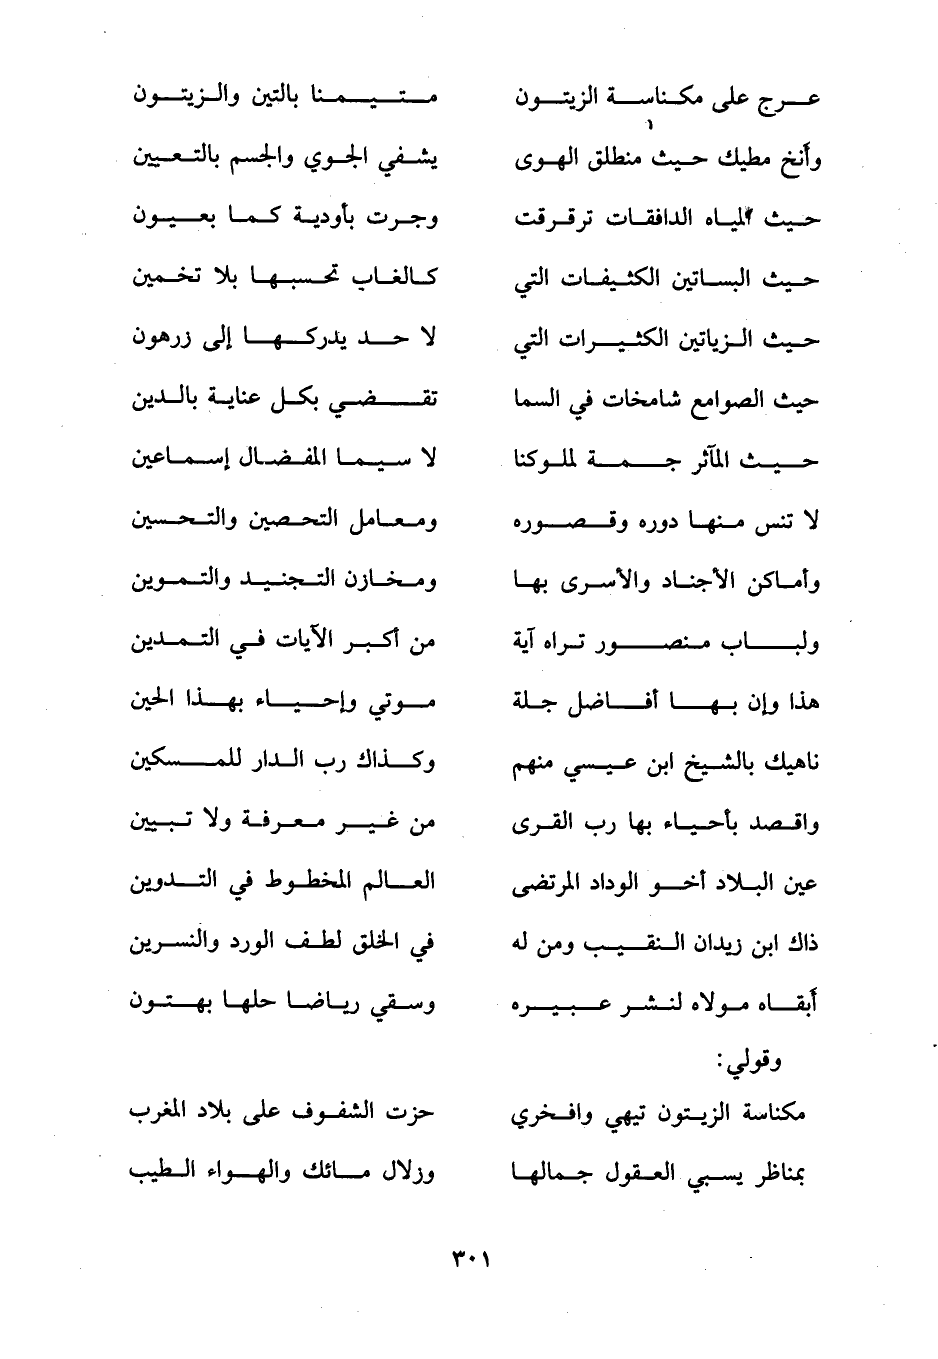 عرج على مكناسة الزيتون متيمنا بالتين والزيتون
وأنخ مطيك حيث منطلق الهوى يشفي الجوي والجسم بالتعيين
حيث المياه الدافقات ترقرقت وجرت بأودية كما بعيون
حيث البساتين الكثيفات التي كالغاب تحسبها بلا تخمين
حيث الزياتين الكثيرات التي لا حد يدركها إلى زرهون
حيث الصوامع شامخات في السما تقضي بكل عناية بالدين
حيث المآثر جمة لملوكنا لا سيما المفضال إسماعين
لا تنس منها دوره وقصوره ومعامل التحصين والتحسين
وأماكن الأجناد والأسرى بها ومخازن التجنيد والتموين
ولباب منصور تراه آية من أكبر الآيات في التمدين
هذا وإن بها أفاضل جلة موتي وإحياء بهذا الحين
ناهيك بالشيخ ابن عيسي منهم وكذاك رب الدار للمسكين
واقصد بأحياء بها رب القرى من غير معرفة ولا تبيين
عين البلاد أخو الوداد المرتضى العالم المخطوط في التدوين
ذاك ابن زيدان النقيب ومن له في الخلق لطف الورد والنسرين
أبقاه مولاه لنشر عبيره وسقي رياضا حلها بهتون
وقولي:
مكناسة الزيتون تيهي وافخري حزت الشفوف على بلاد المغرب
بمناظر يسبي العقول جمالها وزلال مائك والهواء الطيب
٣٠١